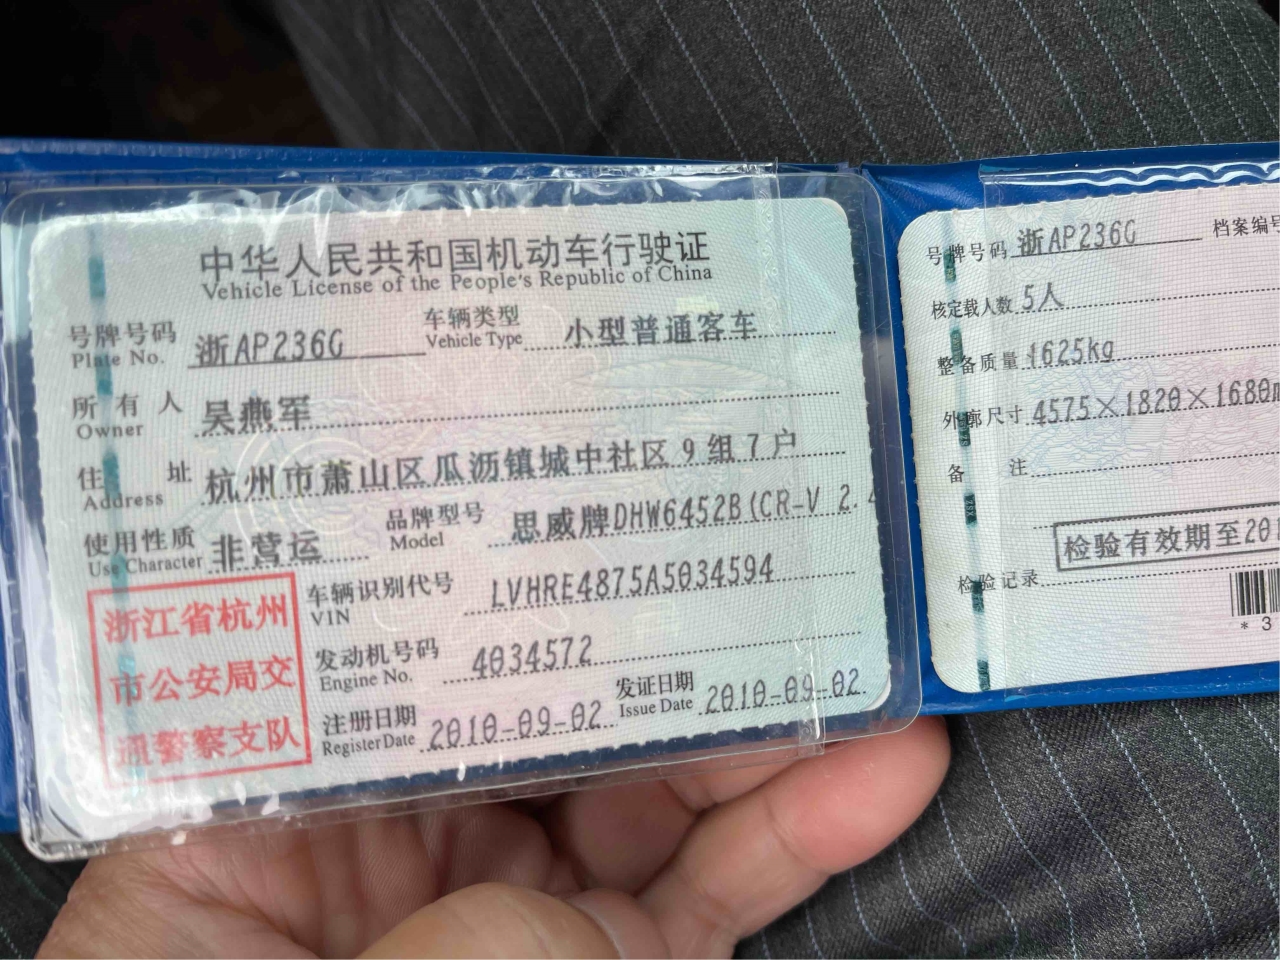 中华人民共和国机动车行驶证
Vehicle License of the People's Republic of China
号牌号码 浙AP236G 车辆类型 小型普通客车
Plate No. Vehicle Type
所有人 吴燕军
Owner
住址 杭州市萧山区瓜沥镇城中社区9组7户
Address
使用性质 非营运 品牌型号 思威牌DHW6452B(CR-V 2.4
Use Character Model
浙江省杭州
市公安局交
通警察支队
车辆识别代号 LVHRE4875A5034594
VIN
发动机号码 4034572
Engine No.
注册日期 2010-09-02 发证日期 2010-09-02
Register Date Issue Date
号牌号码 浙AP236G 档案编号
核定载人数 5人
整备质量 1625kg
外廓尺寸 4575×1820×1680m
备注
检验有效期至201
检验记录
* 3